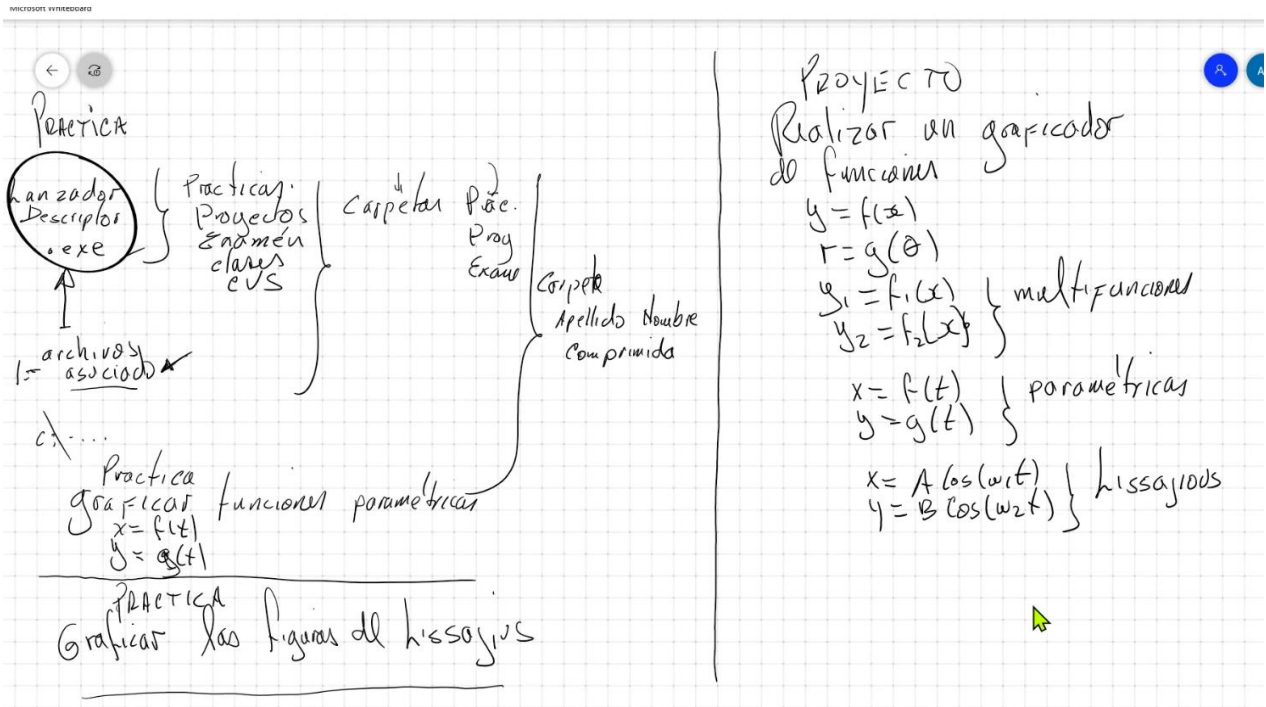 Microsoft Whiteboard
PRACTICA
Lanzador
Descriptor
.exe
Practicas.
Proyectos
Examén
clases
CVS
Carpetas Prac.
Proy
Exame
Carpeta
Apellido Nombre
Comprimida
archivos
1.- asociado
c:\....
Practica
graficar funciones paramétricas
x = f(t)
y = g(t)
PRACTICA
Graficar las figuras de Lissajius
PROYECTO
Realizar un graficador
de funciones
y = f(x)
r = g(θ)
y₁ = f₁(x)
y₂ = f₂(x)
multifunciones
x = f(t)
y = g(t)
paramétricas
x = A Cos(ω₁t)
y = B Cos(ω₂t)
Lissajious
A